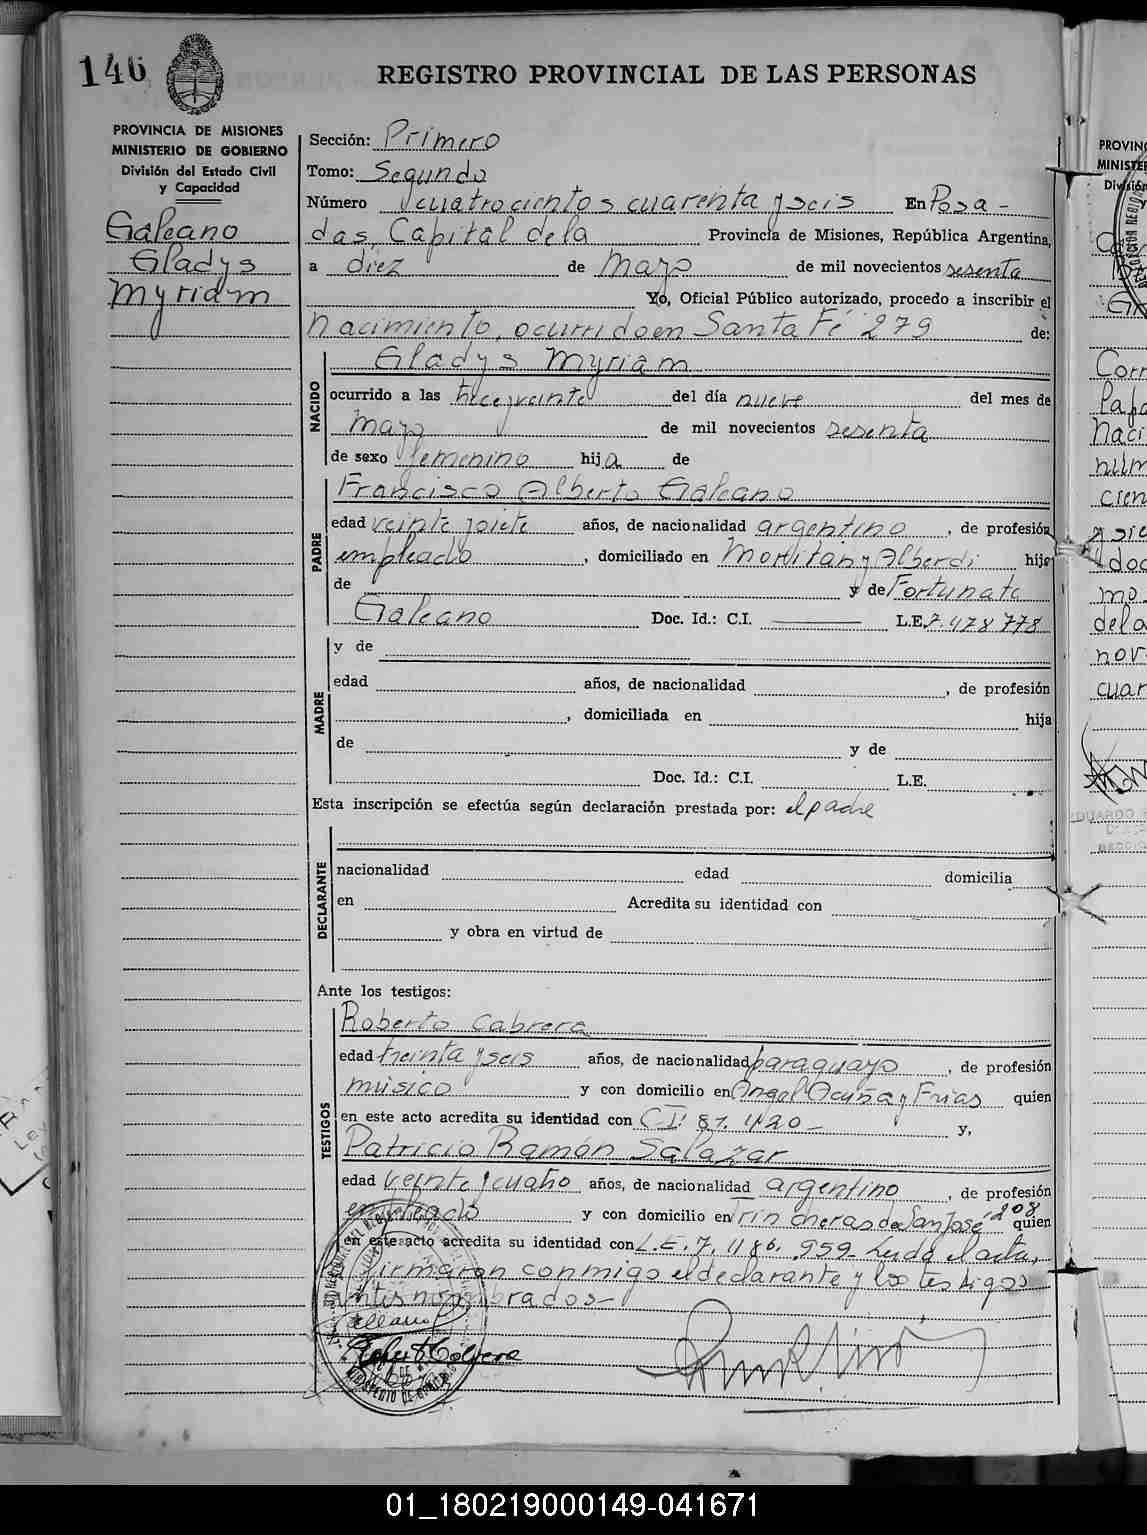 146
REGISTRO PROVINCIAL DE LAS PERSONAS
PROVINCIA DE MISIONES
MINISTERIO DE GOBIERNO
División del Estado Civil
y Capacidad
Galeano
Gladys
Myriam
Sección: Primero
Tomo: Segundo
Número cuatrocientos cuarenta y seis En Posa-
das, Capital de la Provincia de Misiones, República Argentina,
a diez de Mayo de mil novecientos sesenta
Yo, Oficial Público autorizado, procedo a inscribir el
nacimiento, ocurrido en Santa Fé 279 de:
Gladys Myriam
NACIDO
ocurrido a las trece y veinte del día nueve del mes de
mayo de mil novecientos sesenta
de sexo femenino hija de
Francisco Alberto Galeano
PADRE
edad veinte y siete años, de nacionalidad argentino, de profesión
empleado, domiciliado en y Alberdi hijo
de y de Fortunata
Galeano Doc. Id.: C.I. L.E. 7.478 778
MADRE
y de
edad años, de nacionalidad , de profesión
, domiciliada en hija
de y de
Doc. Id.: C.I. L.E.
Esta inscripción se efectúa según declaración prestada por: el padre
DECLARANTE
nacionalidad edad domicilia
en Acredita su identidad con
y obra en virtud de
Ante los testigos:
TESTIGOS
Roberto Cabrera
edad treinta y seis años, de nacionalidad paraguayo, de profesión
músico y con domicilio en Angel Acuña y Frias quien
en este acto acredita su identidad con C.I. 87.420- y,
Patricio Ramón Salazar
edad veinte y cuatro años, de nacionalidad argentino, de profesión
empleado y con domicilio en Trincheras de San José 208 quien
en este acto acredita su identidad con L.E. 7.1186.959- Leida el acta,
firmaron conmigo el declarante y los testigos
antes nombrados-
01_180219000149-041671